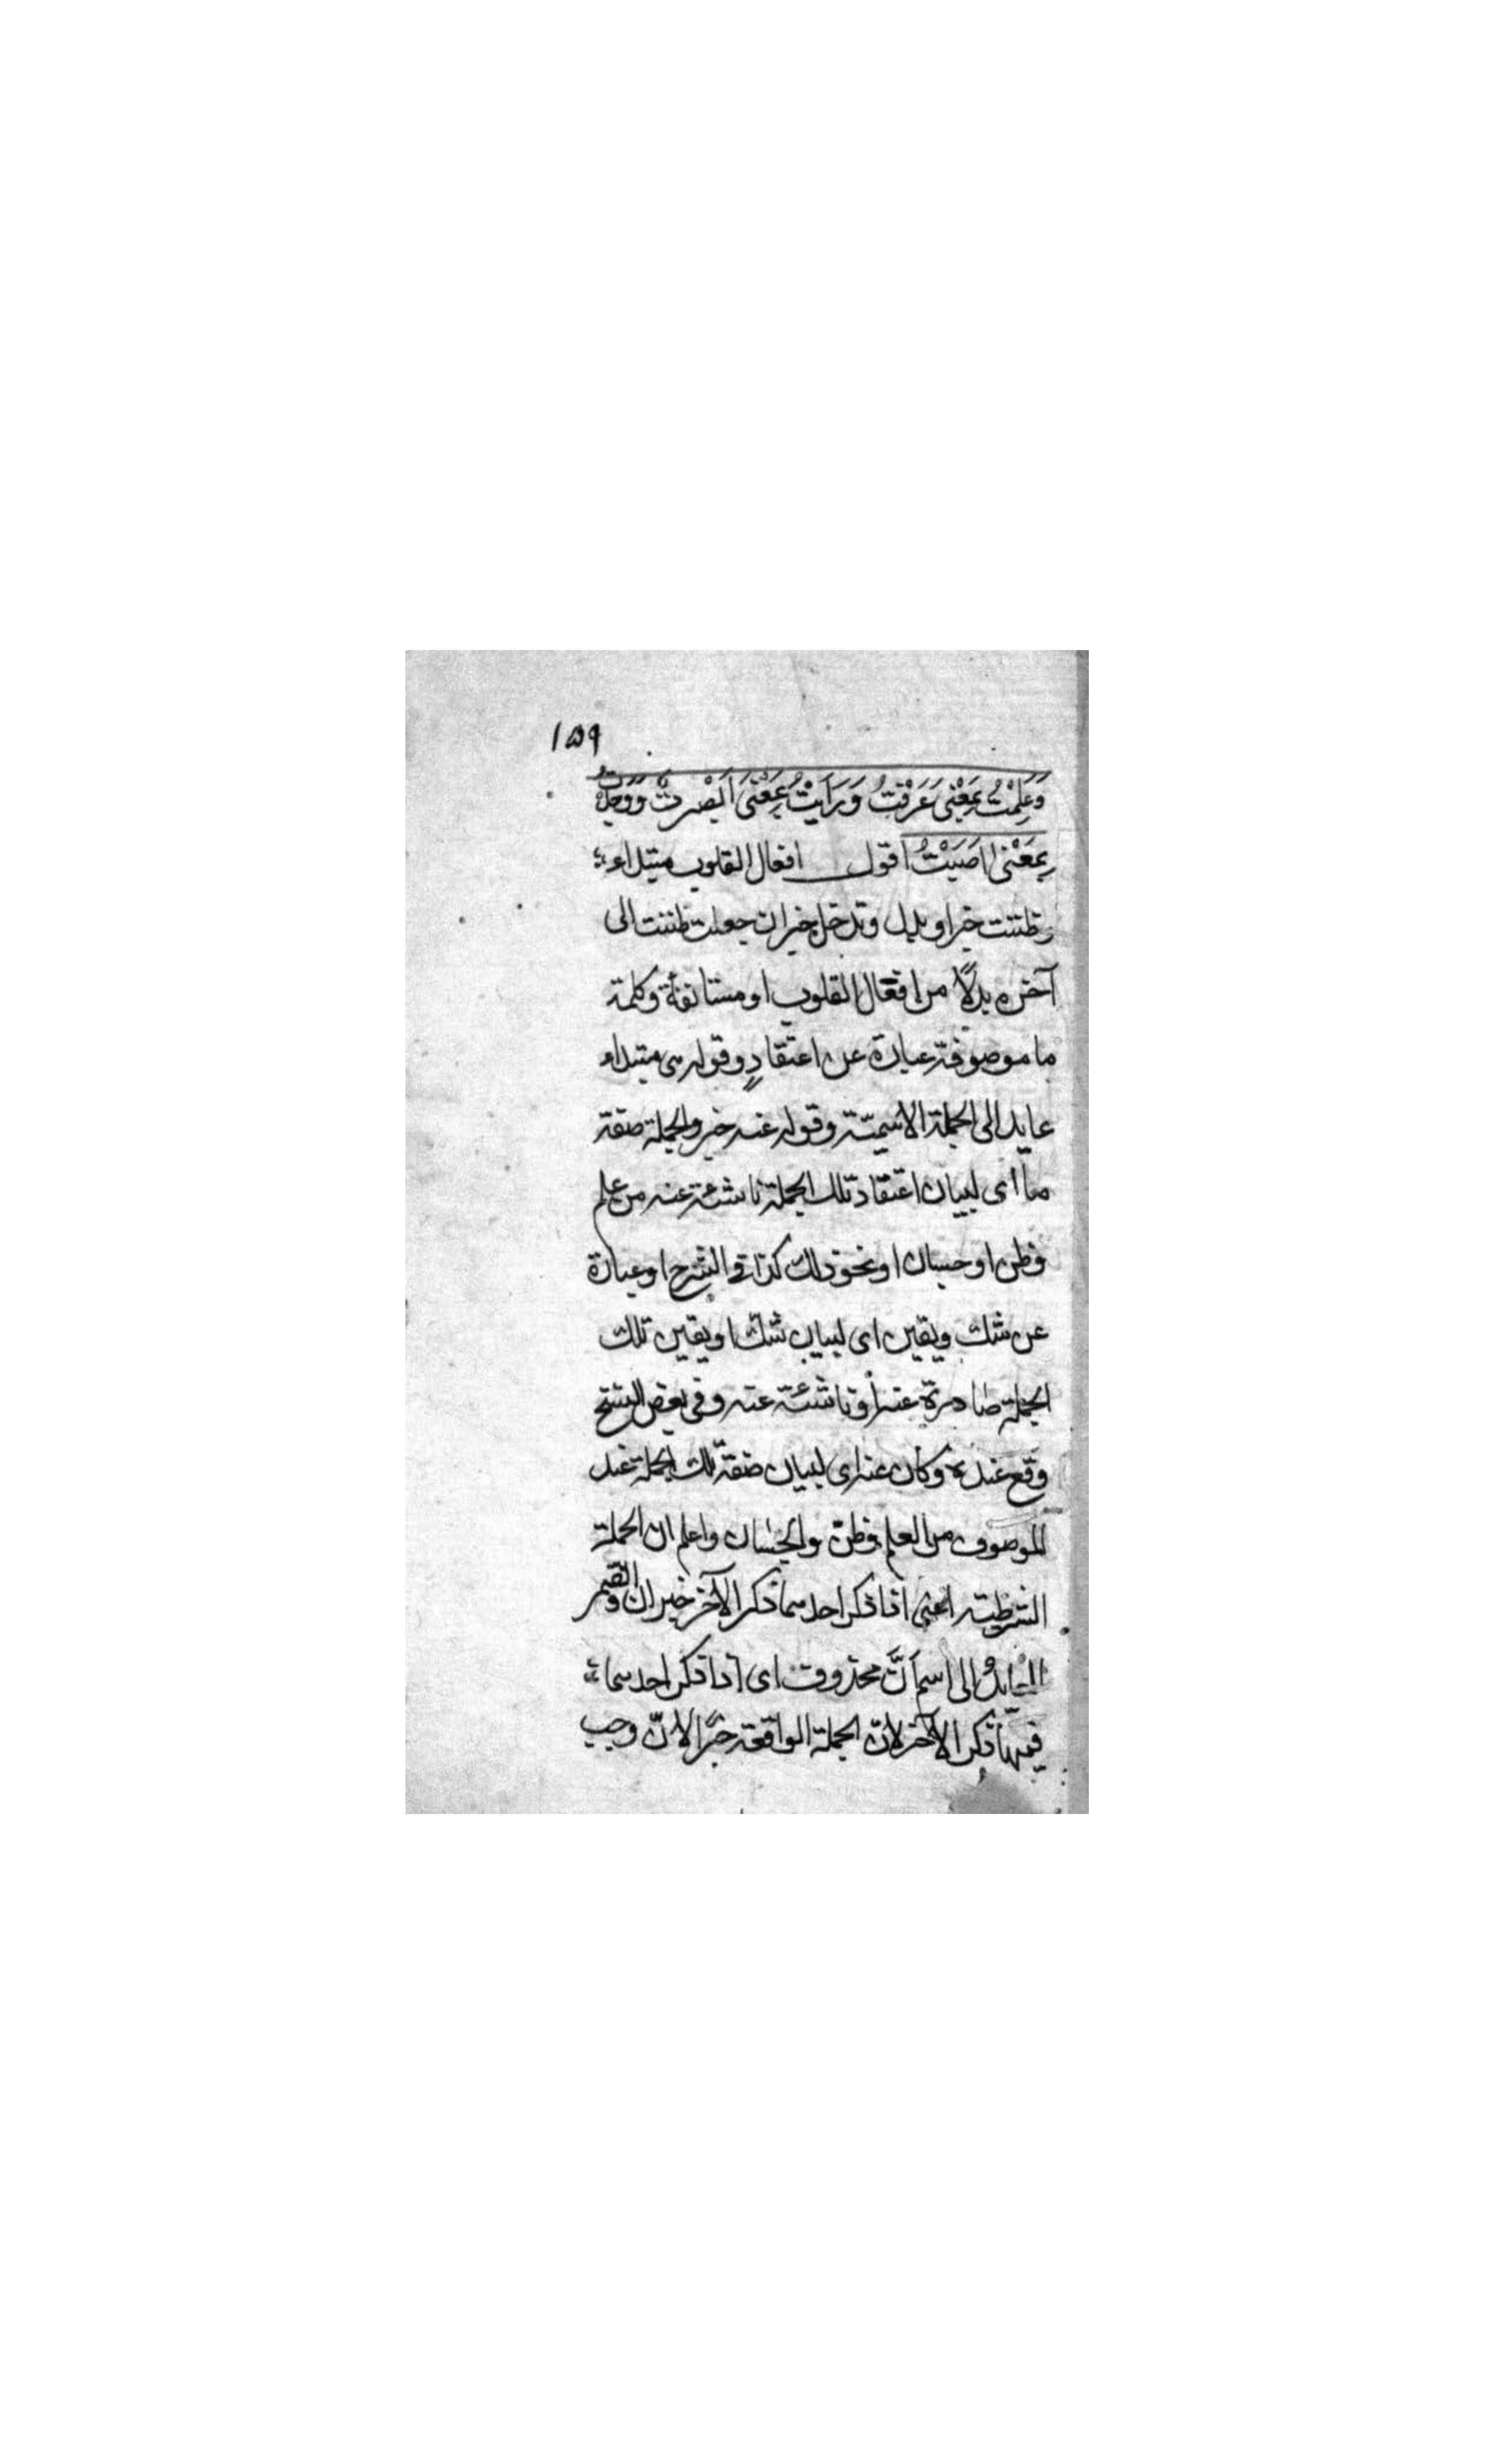 ١٥٩
وَعَلِمْتُ بِمَعْنَى عَرَفْتُ وَرَاَيْتُ بِمَعْنَى اَبْصَرْتُ وَوَجَدْتُ
بِمَعْنَى اَصَبْتُ اقول افعال القلوب مبتداء
وظننت خبر او بدل وتدخل خبر ان جعلت ظننت الى
آخره بدلًا من افعال القلوب او مستانفة وكلمة
ما موصوفة عبارة عن اعتقادٍ وقوله هى مبتداء
عايد الى الجملة الاسميّة وقوله عنه خبر والجملة صفة
ما اى لبيان اعتقاد تلك الجملة ناشئة عنه من علم
وظن او حسبان او نحو ذلك كذا فى الشرح او عبارة
عن شك ويقين اى لبيان شكّ او يقين تلك
الجملة صادرة عنه أو ناشئة عنه وفى بعض النسخ
وقع عنده وكان عنه اى لبيان صفة تلك الجملة عند
الموصوف من العلم وظن والحسبان واعلم ان الجملة
الشرطية اعنى اذا ذكر احدهما ذكر الآخر خبر ان والضمير
العايدُ الى اسم اَنَّ محذوف اى اذا ذكر احدهما
فيها ذكر الآخر لانّ الجملة الواقعة خبرًا لانّ وجب